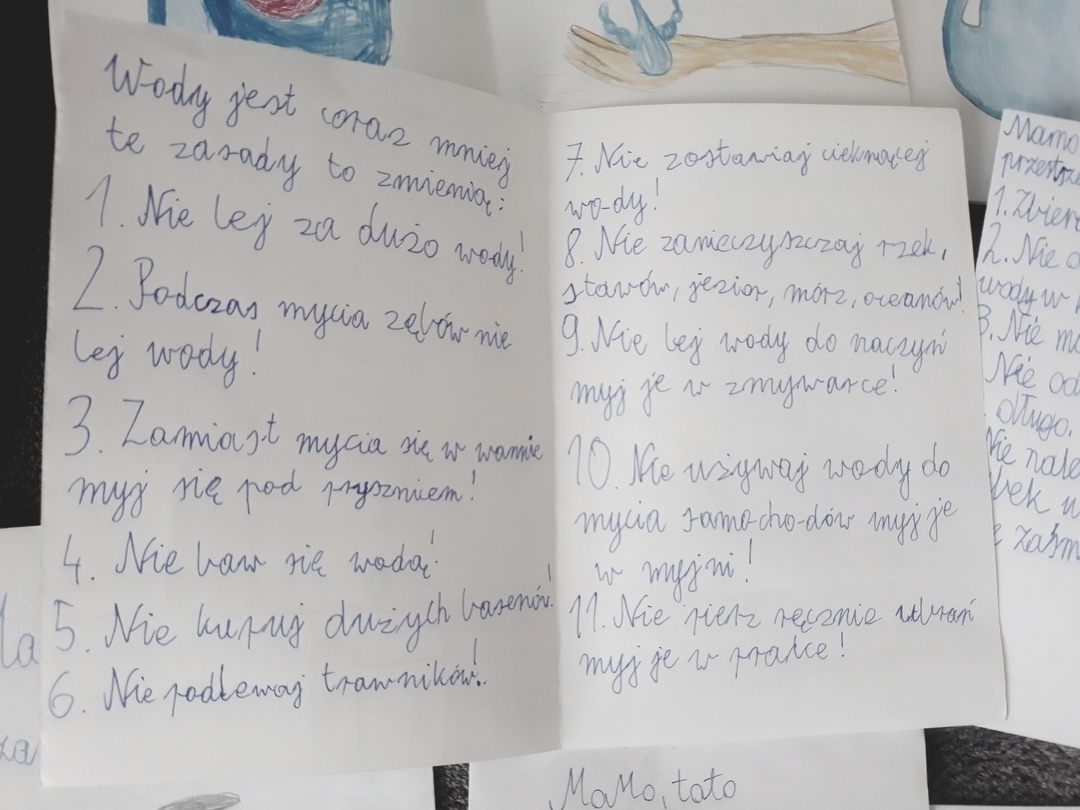 Wody jest coraz mniej
te zasady to zmienią:
1. Nie lej za dużo wody!
2. Podczas mycia zębów nie
lej wody!
3. Zamiast mycia się w wannie
myj się pod prysznicem!
4. Nie baw się wodą!
5. Nie kupuj dużych basenów!
6. Nie podlewaj trawników!
7. Nie zostawiaj cieknącej
wo-dy!
8. Nie zanieczyszczaj rzek,
stawów, jezior, mórz, oceanów!
9. Nie lej wody do naczyń
myj je w zmywarce!
10. Nie używaj wody do
mycia samo-cho-dów myj je
w myjni!
11. Nie pierz ręcznie ubrań
myj je w pralce!
Mamo
1.
2. Nie
wody w
3. Nie
Nie
długo.
MaMo, tato